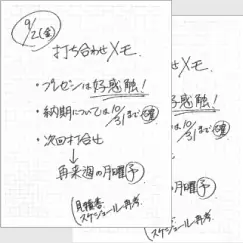 9/2(金)
打ち合わせメモ.
・プレゼンは好感触!
・納期については10/31まで
・次回打合せ
↓
再来週の月曜(予)
(見積書.
スケジュール再考.
せメモ.
感触!
は10/31まで
の月曜(予)
書.
スケジュール再考.